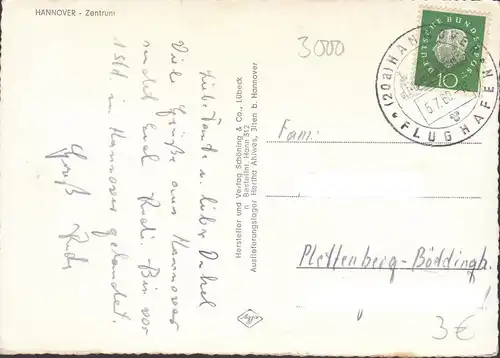 HANNOVER - Zentrum
3000
Liebe Tante u. lieber Onkel
Viele Grüße aus Hannover
sendet Euch Rudi. Bin vor
1 Std. in Hannover gelandet.
Gruß Rudi
Hersteller und Verlag Schöning & Co., Lübeck
n Bestellnr. Hann 512
Auslieferungslager Hertha Ahlwes, 3Iten b. Hannover
DEUTSCHE BUNDESPOST
10
(20a) HANNOVER
5.7.60
FLUGHAFEN
Fam:
Plettenberg-Böddingh.
3€